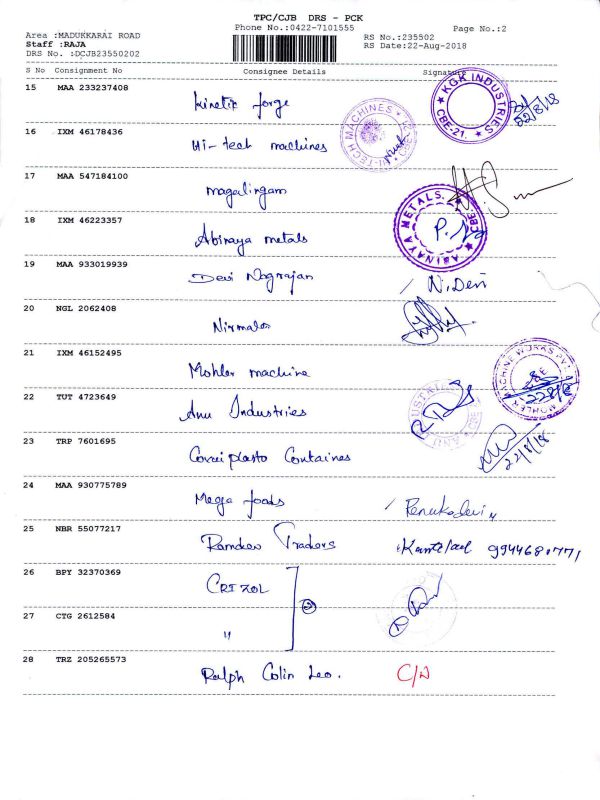 TPC/CJB DRS - PCK
Phone No.:0422-7101555
Page No.:2
Area :MADUKKARAI ROAD
Staff :RAJA
DRS No. :DCJB23550202
RS No.:235502
RS Date:22-Aug-2018
S No Consignment No Consignee Details Signature
15 MAA 233237408 Kinetic forge
KGK INDUSTRIES CBE-21.
22/8/18
16 IXM 46178436 Hi-tech machines
HI-TECH MACHINES
17 MAA 547184100 Magalingam
18 IXM 46223357 Abinaya metals
ABINAYA METALS. CBE
19 MAA 933019939 Devi Nagrajan / N.Devi
20 NGL 2062408 Nirmala
21 IXM 46152495 Mohler machine
MOHLER MACHINE WORKS PVT
22/8/18
22 TUT 4723649 Anu Industries
23 TRP 7601695 Containes
22/8/18
24 MAA 930775789 Mega foods / Renukadevi
25 NBR 55077217 Ramdev Traders
26 BPY 32370369 CRIZOL
2
27 CTG 2612584 "
28 TRZ 205265573 Ralph Colin Leo. C/N